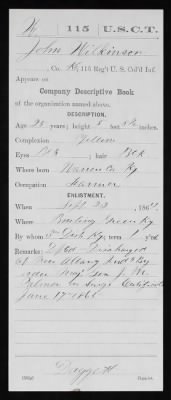 W | 115 | U.S.C.T.
John Wilkinson
, Co. K, 115 Reg't U. S. Col'd Inf.
Appears on
Company Descriptive Book
of the organization named above.
DESCRIPTION.
Age 28 years; height 5 feet inches.
Complexion Yellow
Eyes Blk ; hair Blk
Where born Warren Co Ky
Occupation Farmer
ENLISTMENT.
When Sept 23 , 186
Where Bowling Green Ky
By whom ; term y'rs.
Remarks: Discharged
at New Albany Ind by
order Maj Gen J M
Palmer on Surgs Certificate
June 17 1865
Daggett
Copyist.